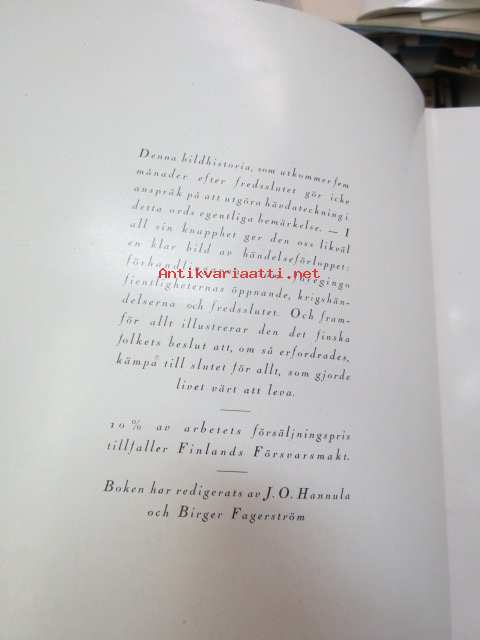 Denna bildhistoria, som utkommer fem
månader efter fredsslutet gör icke
anspråk på att utgöra hävdateckning i
detta ords egentliga bemärkelse. — I
all sin knapphet ger den oss likväl
en klar bild av händelseförloppet:
Antikvariaatti.net
fientligheternas öppnande, krigshän-
delserna och fredsslutet. Och fram-
för allt illustrerar den det finska
folkets beslut att, om så erfordrades,
kämpa till slutet för allt, som gjorde
livet värt att leva.
10% av arbetets försäljningspris
tillfaller Finlands Försvarsmakt.
Boken har redigerats av J. O. Hannula
och Birger Fagerström